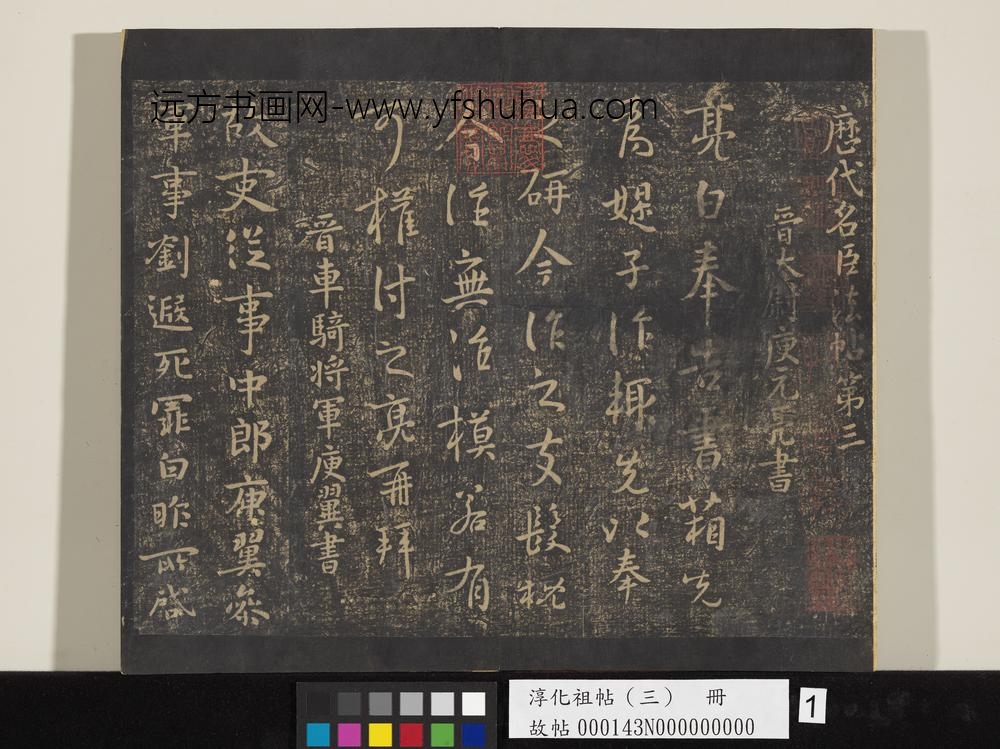 远方书画网-www.yfshuhua.com
歷代名臣法帖第三
晉太尉庾元亮書
亮白奉告書箱先
為媞子作輒先以奉
研今作之支髮粃
命作無治模若有
可權付之亮再拜
晉車騎将軍庾翼書
故吏從事中郎庾翼參
軍事劉遐死罪白昨所啟
淳化祖帖（三） 冊
故帖 000143N000000000
1